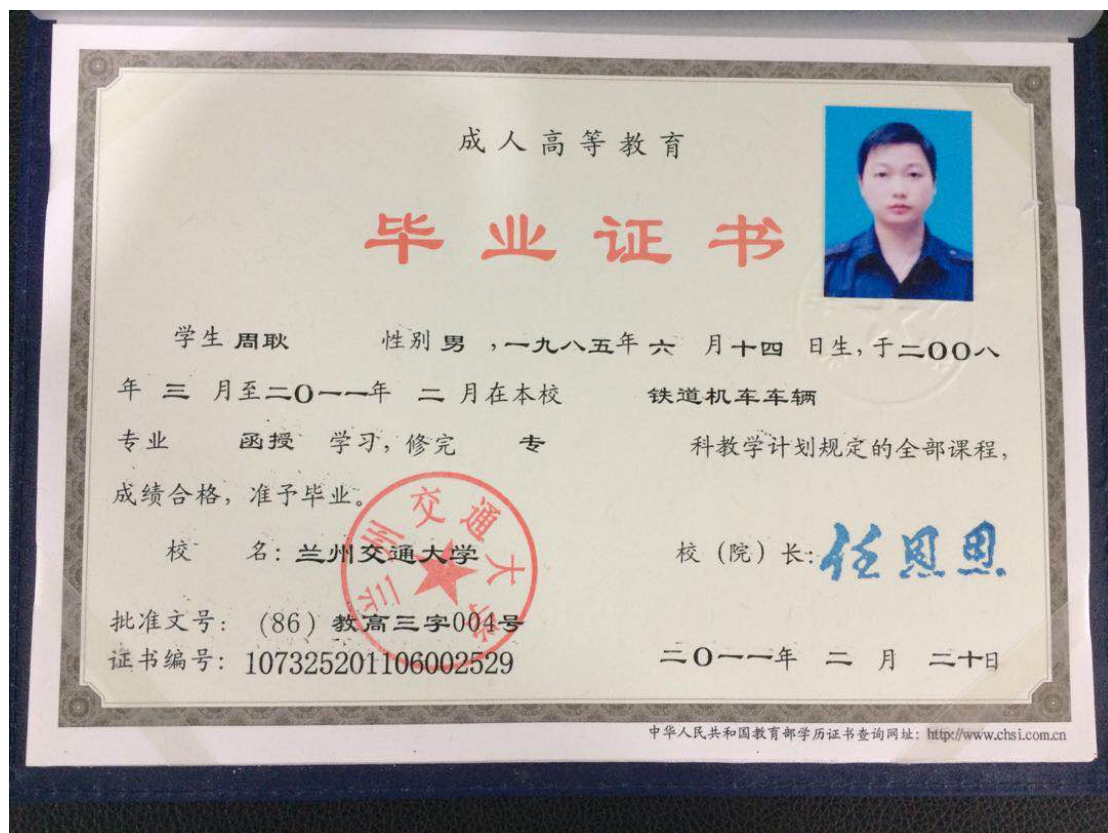 成人高等教育
毕业证书
学生 周耿 性别 男 ，一九八五年 六 月十四 日生，于二OO八
年 三 月至二O一一年 二 月在本校 铁道机车车辆
专业 函授 学习，修完 专 科教学计划规定的全部课程，
成绩合格，准予毕业。
兰州交通大学
校 名：兰州交通大学 校（院）长：任恩恩
批准文号：（86）教高三字004号
证书编号：107325201106002529 二O一一年 二 月 二十日
中华人民共和国教育部学历证书查询网址：http://www.chsi.com.cn